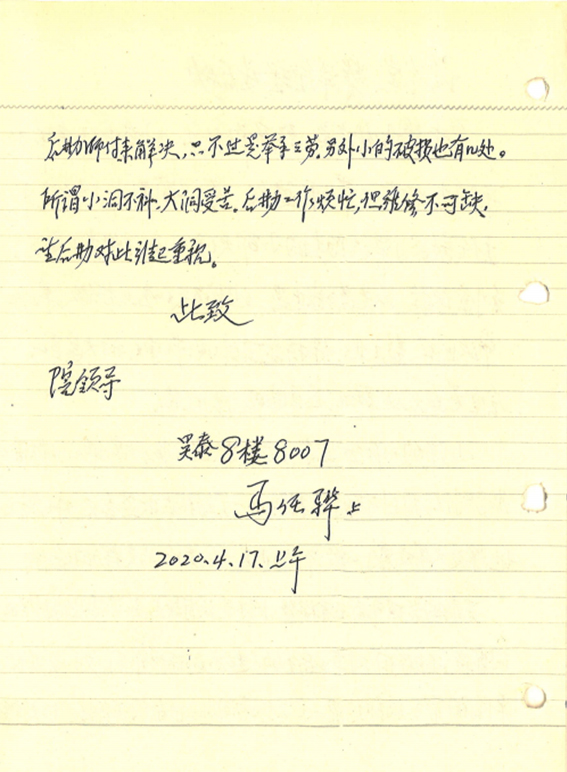 后勤师付来解决,只不过是举手之劳。另外小的破损也有几处。
所谓小洞不补,大洞受苦。后勤工作烦忙,但维修不可缺,
望后勤对此引起重视。
此致
院领导
吴泰8楼8007
马任骅上
2020.4.17.上午